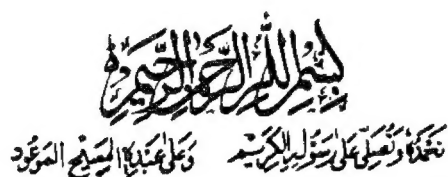 بِسْمِ اللّٰهِ الرَّحْمٰنِ الرَّحِيْمِ
نَحْمَدُهٗ وَنُصَلِّیْ عَلٰی رَسُوْلِهِ الْكَرِیْمِ وَعَلٰی عَبْدِهِ الْمَسِیْحِ الْمَوْعُوْد